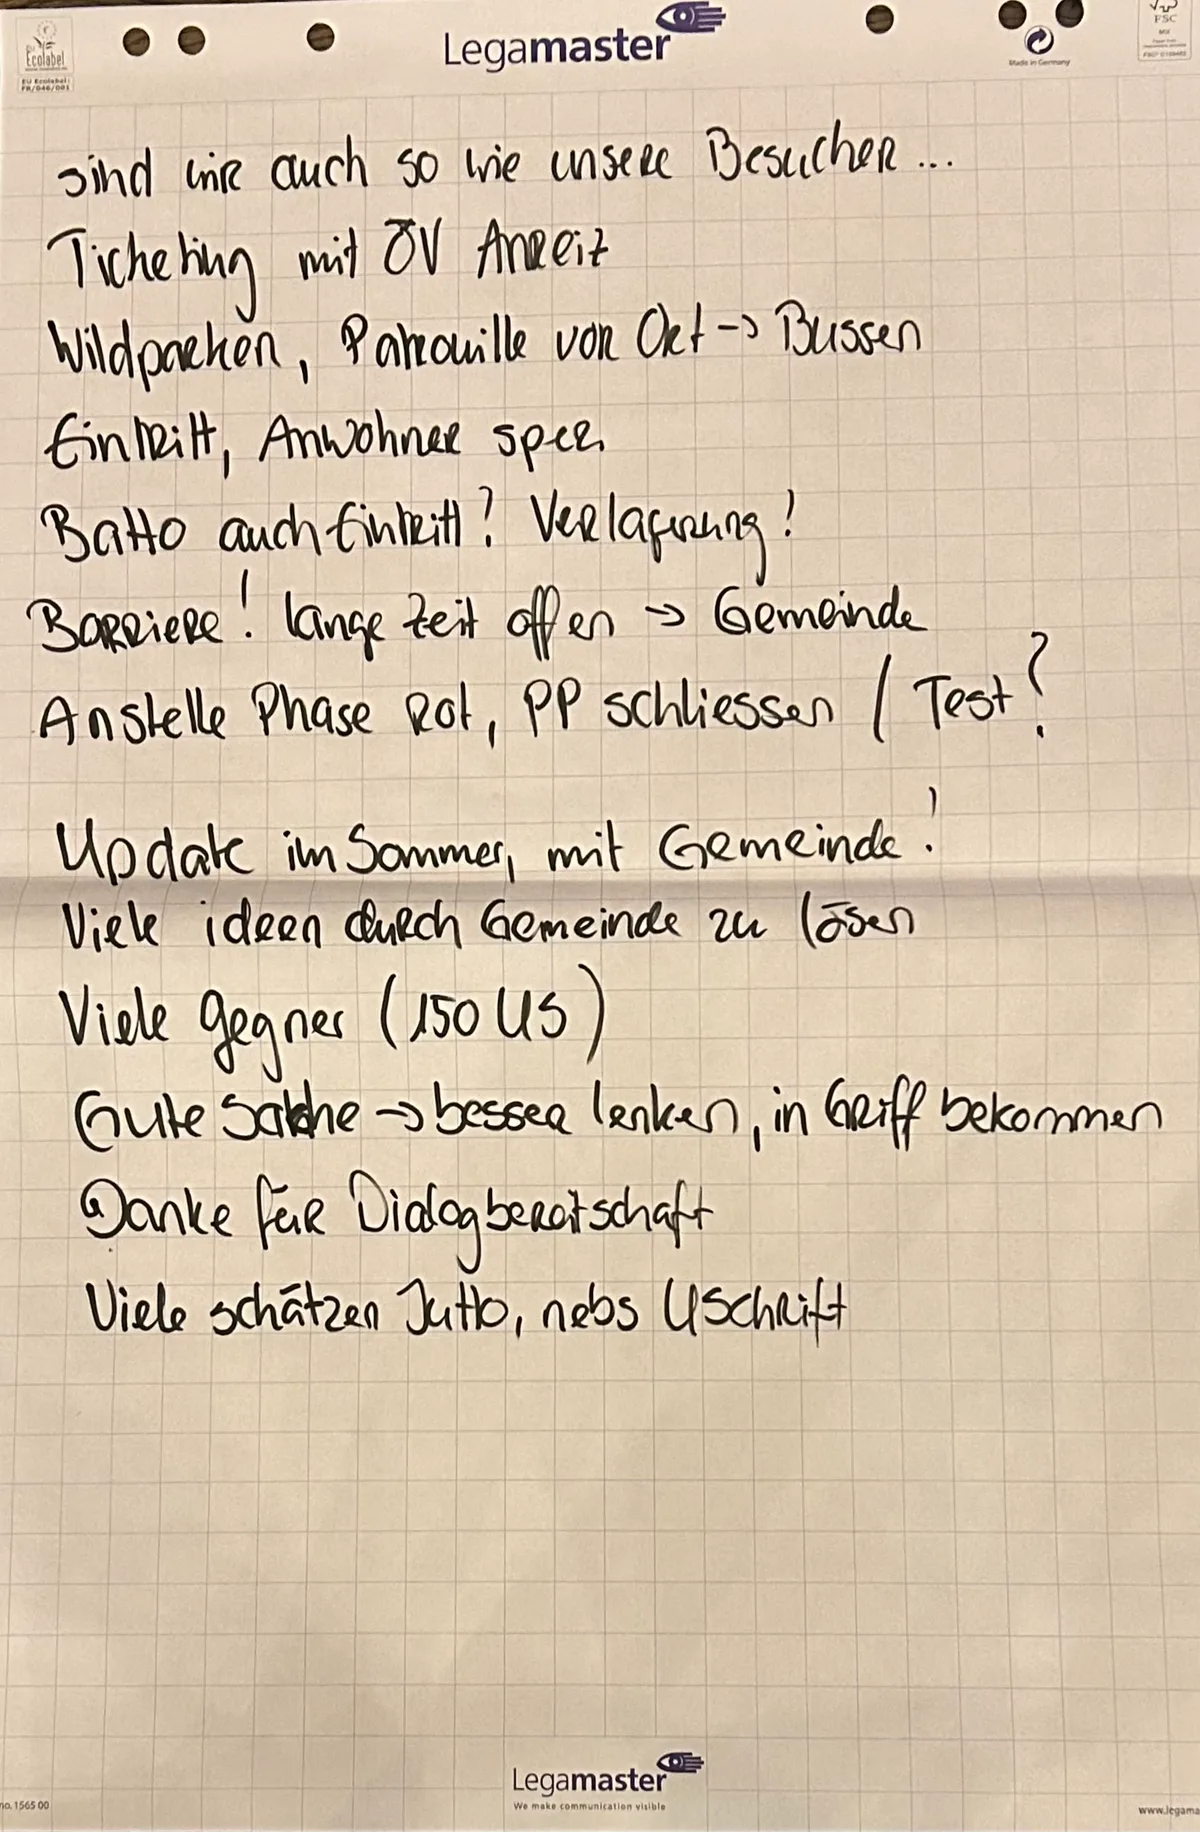 Ecolabel
EU Ecolabel:
FR/046/001
Legamaster
Made in Germany
FSC
MIX
sind wir auch so wie unsere Besucher...
Ticketing mit ÖV Anreiz
Wildparken, Patrouille von Okt -> Bussen
Eintritt, Anwohner sper.
Batto auch Eintritt? Verlagerung!
Barriere! lange Zeit offen -> Gemeinde
Anstelle Phase Rot, PP schliessen / Test?
Update im Sommer, mit Gemeinde!
Viele ideen durch Gemeinde zu lösen
Viele gegner (150 US)
Gute Sache -> besser lenken, in Griff bekommen
Danke für Dialogbereitschaft
Viele schätzen Jutto, nebs USchrift
Legamaster
We make communication visible
no. 1565 00
www.legama